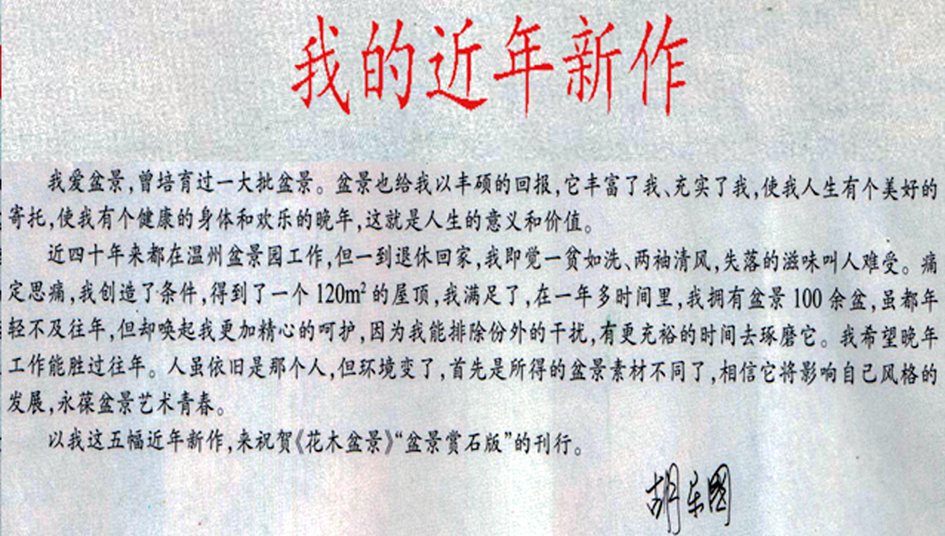 我的近年新作
我爱盆景,曾培育过一大批盆景。盆景也给我以丰硕的回报,它丰富了我、充实了我,使我人生有个美好的
寄托,使我有个健康的身体和欢乐的晚年,这就是人生的意义和价值。
近四十年来都在温州盆景园工作,但一到退休回家,我即觉一贫如洗、两袖清风,失落的滋味叫人难受。痛
定思痛,我创造了条件,得到了一个120m²的屋顶,我满足了,在一年多时间里,我拥有盆景100余盆,虽都年
轻不及往年,但却唤起我更加精心的呵护,因为我能排除份外的干扰,有更充裕的时间去琢磨它。我希望晚年
工作能胜过往年。人虽依旧是那个人,但环境变了,首先是所得的盆景素材不同了,相信它将影响自己风格的
发展,永葆盆景艺术青春。
以我这五幅近年新作,来祝贺《花木盆景》“盆景赏石版”的刊行。
胡乐国